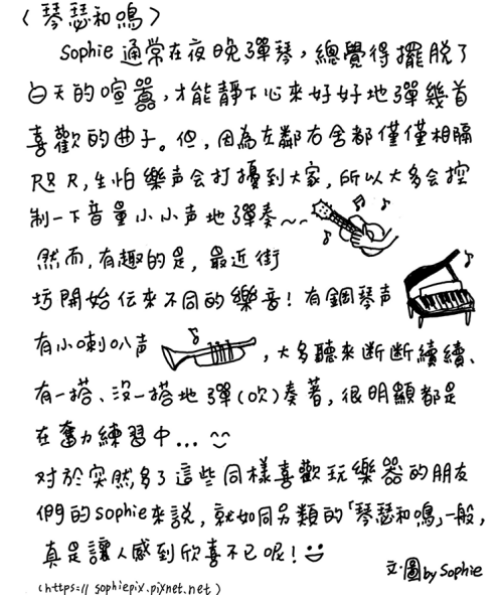 〈琴瑟和鳴〉
Sophie 通常在夜晚彈琴，總覺得擺脫了
白天的喧囂，才能靜下心來好好地彈幾首
喜歡的曲子。但，因為左鄰右舍都僅僅相隔
咫尺，生怕樂声会打擾到大家，所以大多会控
制一下音量小小声地彈奏～～
然而，有趣的是，最近街
坊開始伝來不同的樂音！有鋼琴声
有小喇叭声，大多聽來斷斷續續、
有一搭、沒一搭地彈(吹)奏著，很明顯都是
在奮力練習中...
対於突然多了這些同樣喜歡玩樂器的朋友
們的Sophie來說，就如同另類的「琴瑟和鳴」一般，
真是讓人感到欣喜不已呢！
文·圖 by Sophie
(https://sophiepix.pixnet.net)